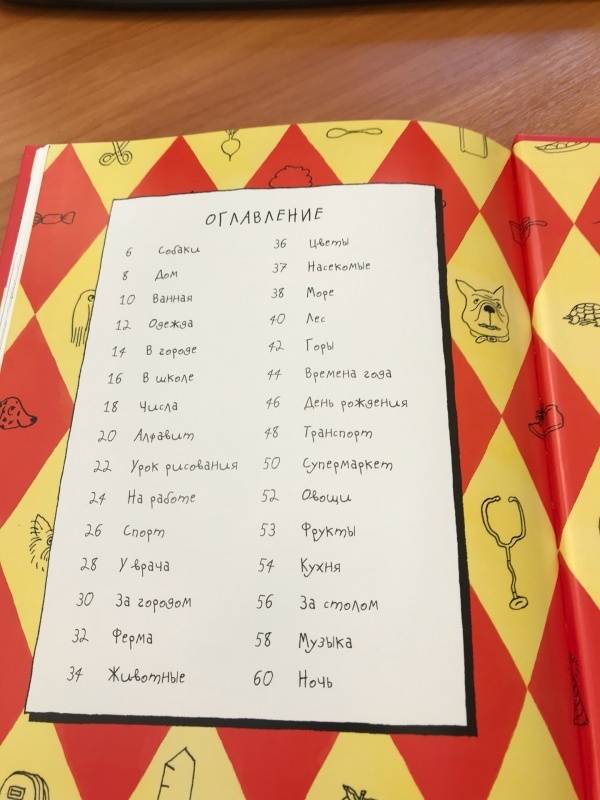 ОГЛАВЛЕНИЕ
6 Собаки
8 Дом
10 Ванная
12 Одежда
14 В городе
16 В школе
18 Числа
20 Алфавит
22 Урок рисования
24 На работе
26 Спорт
28 У врача
30 За городом
32 Ферма
34 Животные
36 Цветы
37 Насекомые
38 Море
40 Лес
42 Горы
44 Времена года
46 День рождения
48 Транспорт
50 Супермаркет
52 Овощи
53 Фрукты
54 Кухня
56 За столом
58 Музыка
60 Ночь